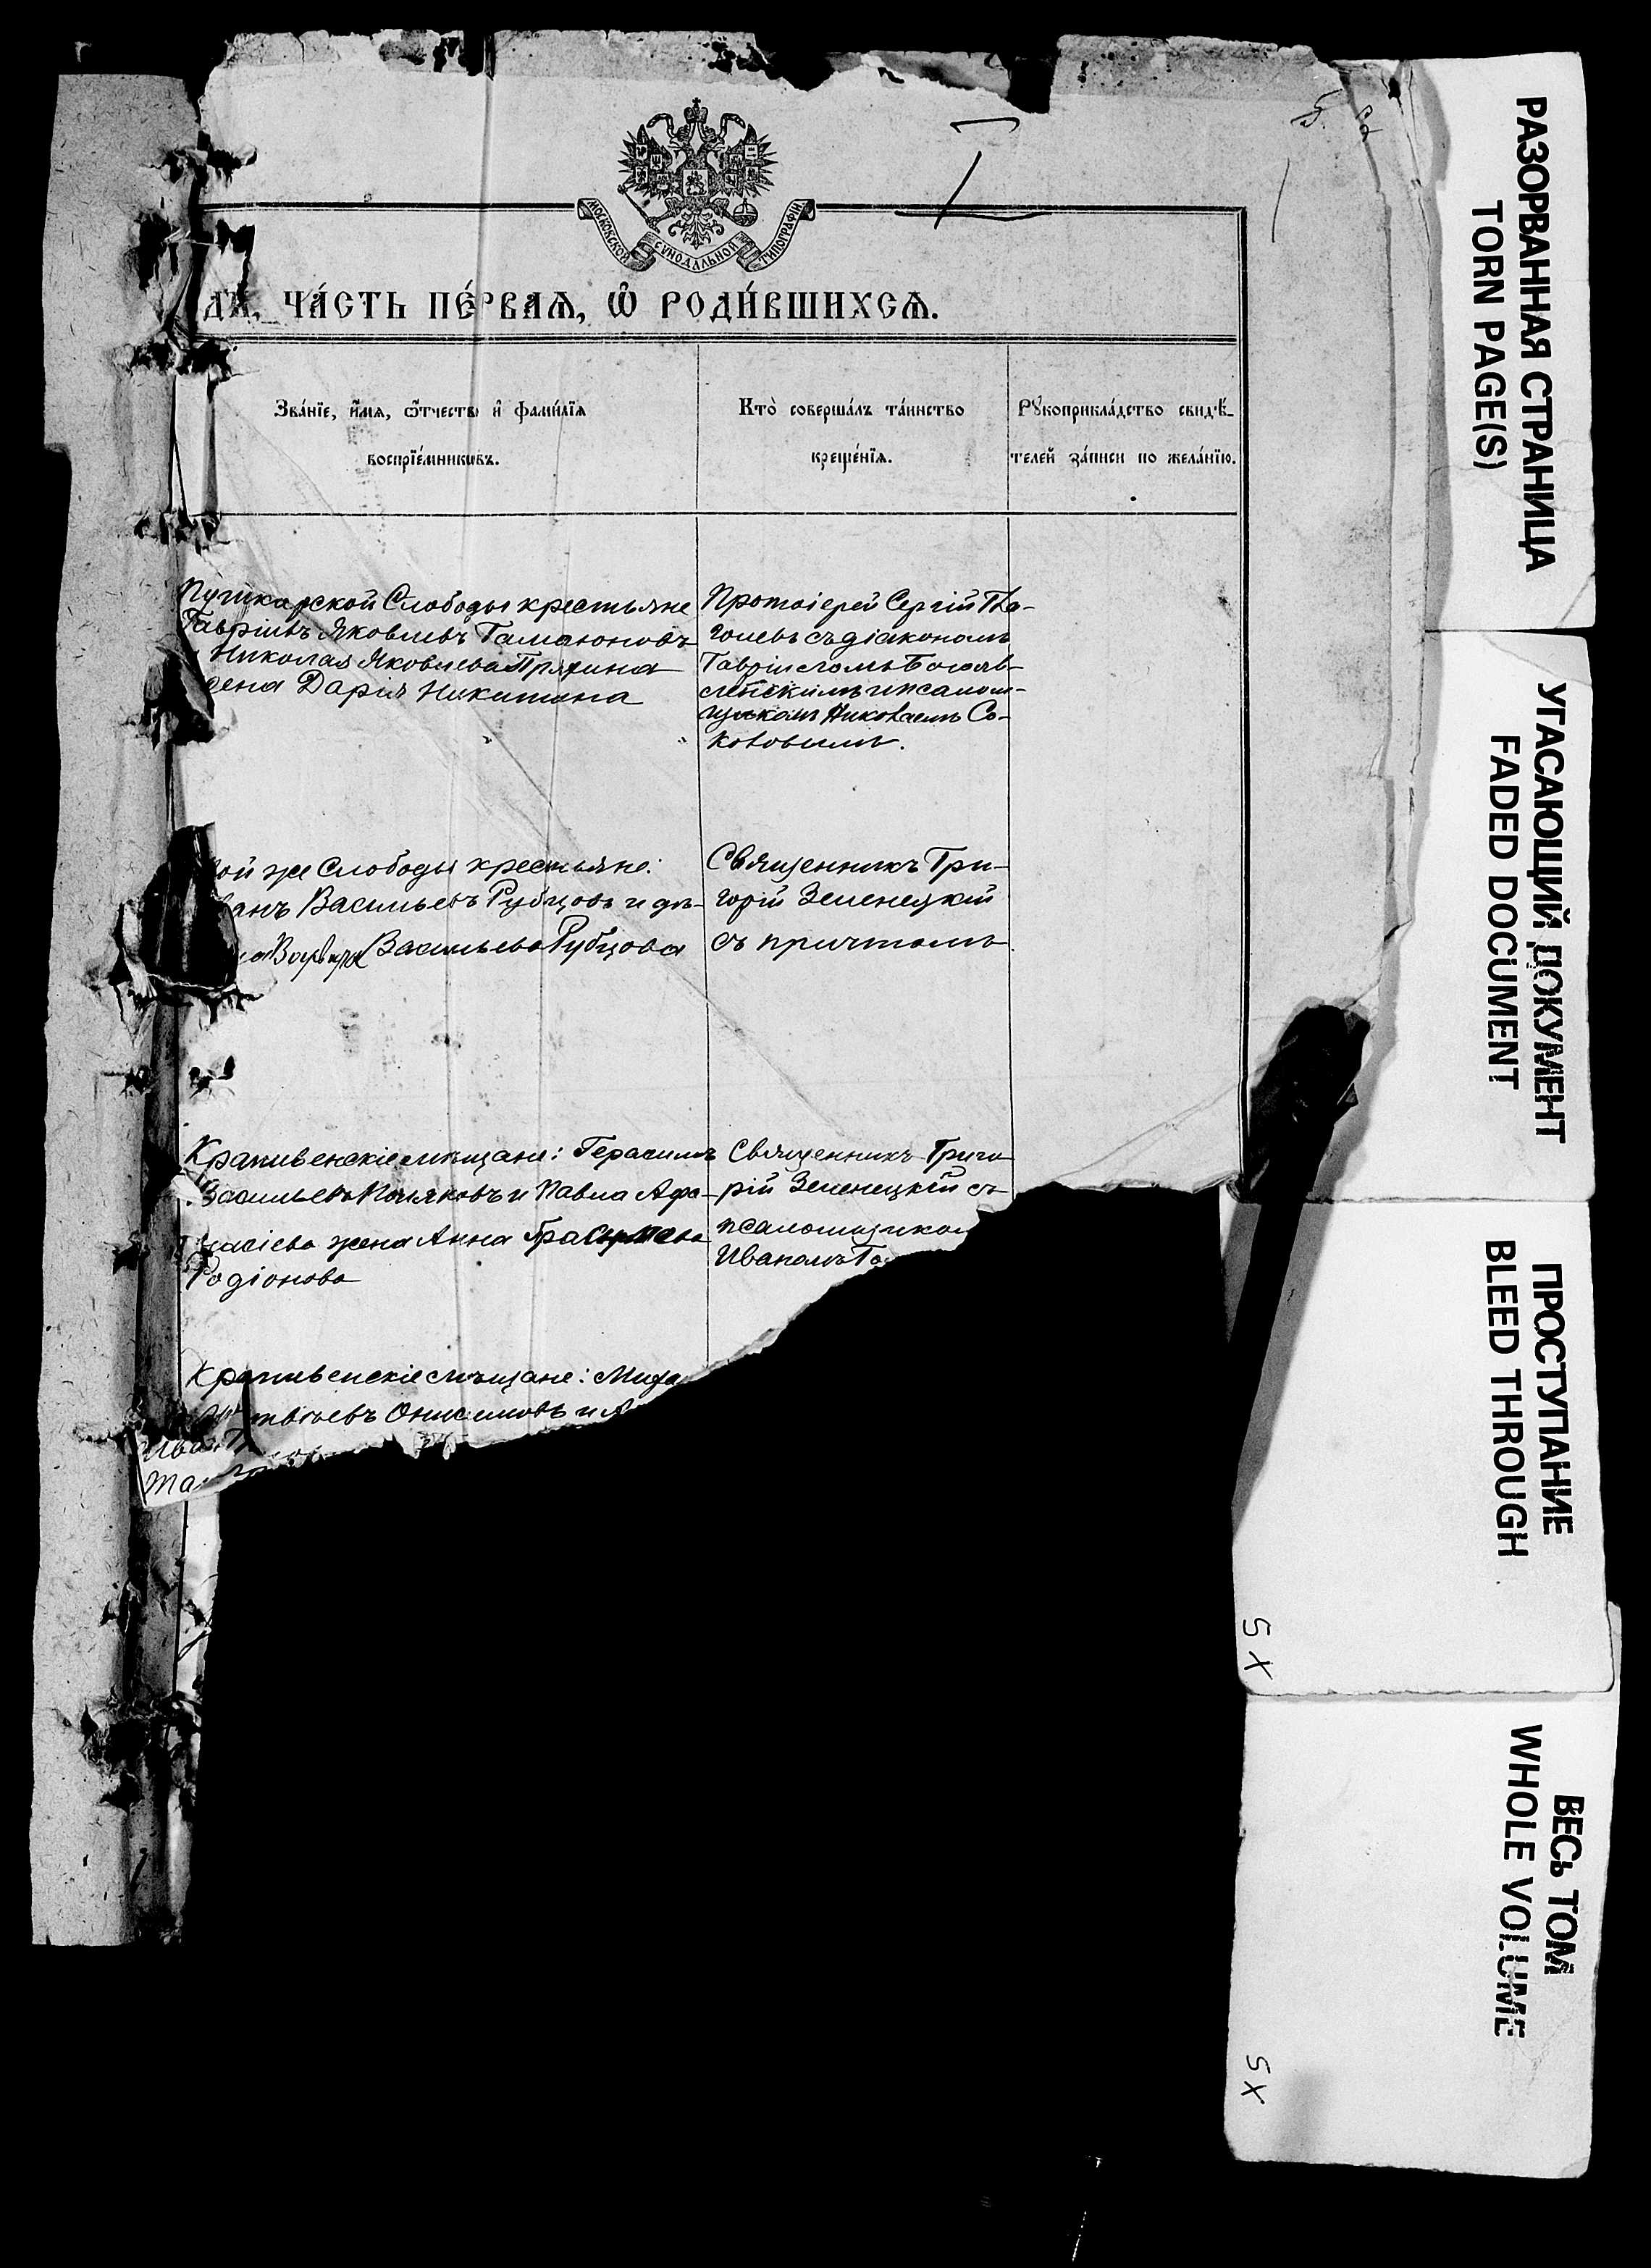 МОСКОВСКОЙ СѴНОДАЛЬНОЙ ТИПОГРАФІИ
ЧА́СТЬ ПЕ́РВАѦ, Ѽ РОДИ́ВШИХСѦ.
Зва́нїе, и҆́мѧ, ѻ҆́тчество и҆ фамі́лїѧ
воспрїе́мникѡвъ.
Кто̀ соверша́лъ та́инство
креще́нїѧ.
Рꙋкоприкла́дство свидѣ́-
телей за́писи по жела́нїю.
Пушкарской Слободы крестьяне
Гавріилъ Яковлевъ Гамаюновъ
Николая Яковлева Пряхина
жена Дарія Никитина
Протоіерей Сергій Гла-
голевъ съ діакономъ
Гавріиломъ Богояв-
ленскимъ и псалом-
щикомъ Николаемъ Со-
коловымъ.
той же Слободы крестьяне:
Иванъ Васильевъ Рубцовъ и дѣ-
Васильева Рубцова
Священникъ Гри-
горій Зеленецкій
съ причтомъ
Крапивенскіе мѣщане: Герасимъ
Васильевъ Поляковъ и Павла Афа-
насіева жена Анна Герасимова
Родіонова
Священникъ Григо
рій Зеленецкій съ
псаломщиком
Иваномъ
Крапивенскіе мѣщане: Миха
Онисимовъ и
РАЗОРВАННАЯ СТРАНИЦА
TORN PAGE(S)
УГАСАЮЩИЙ ДОКУМЕНТ
FADED DOCUMENT
ПРОСТУПАНИЕ
BLEED THROUGH
5X
ВЕСЬ ТОМ
WHOLE VOLUME
5X